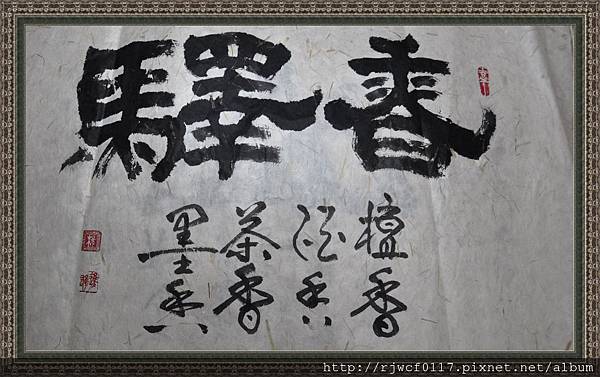 香驛
檀香
酒香
茶香
墨香
http://rjwcf0117.pixnet.net/album